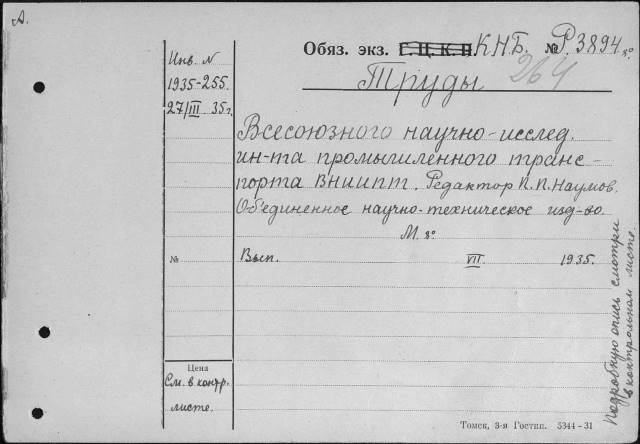 А.
Обяз. экз. Г. Ц. К. П. К.Н.Б. № Р.3894 8°
264
Труды
Инв. N
1935-255.
27/III 35 г.
Всесоюзного научно-исслед.
ин-та промышленного транс-
порта ВНИИПТ. Редактор П.П.Наумов.
Объединенное научно-техническое изд-во.
М. 8°
№ Вып. VII 1935.
Цена
См. в контр.
листе.
Подробную опись смотри
в контрольном листе.
Томск, 3-я Гостип. 5344-31